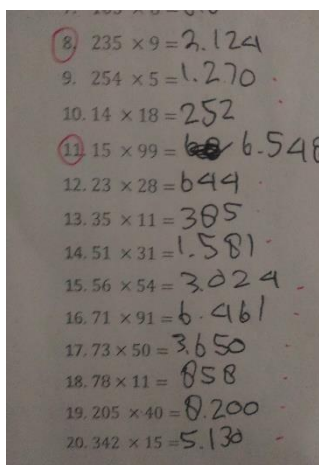 8. 235 × 9 = 3.124
9. 254 × 5 = 1.270
10. 14 × 18 = 252
11. 15 × 99 = 6.548
12. 23 × 28 = 644
13. 35 × 11 = 385
14. 51 × 31 = 1.581
15. 56 × 54 = 3.024
16. 71 × 91 = 6.461
17. 73 × 50 = 3.650
18. 78 × 11 = 858
19. 205 × 40 = 8.200
20. 342 × 15 = 5.130